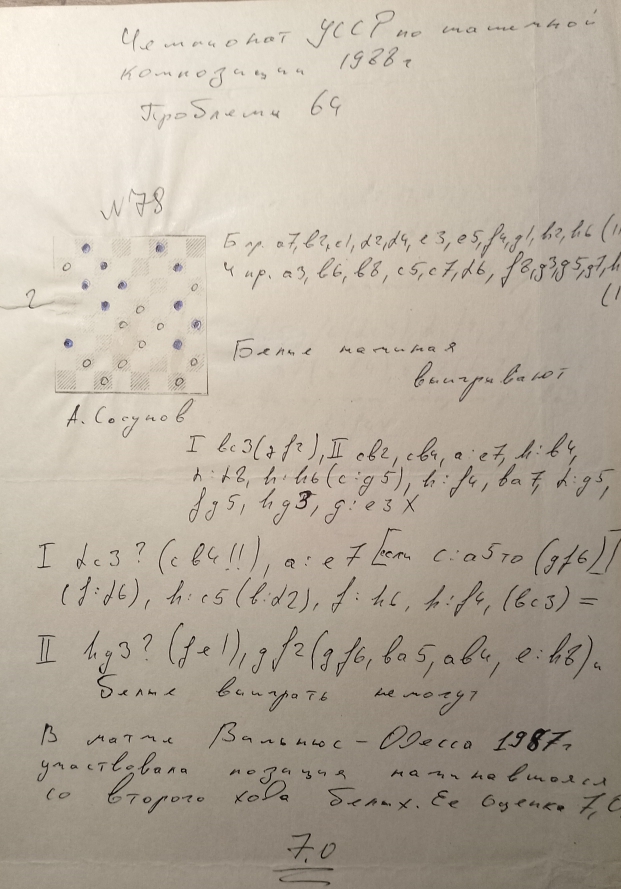 Чемпионат УССР по шашечной
композиции 1988г
Проблемы 64
N78
Б пр. a7, b2, c1, d2, d4, e3, e5, f4, g1, h2, h6 (11
Ч пр. a3, b6, b8, c5, c7, d6, f8, g3, g5, g7, h
(1
2
Белые начиная
выигрывают
А. Сосунов
I bc3 (gf2), II cb2, cb4, a:e7, h:b4,
d:d8, h:h6 (c:g5), h:f4, ba7, d:g5,
fg5, hg3, g:e3 X
I dc3? (cb4!!), a:e7 [если c:a5 то (gf6)]
(f:d6), h:c5 (b:d2), f:h6, h:f4, (bc3) =
II hg3? (fe!), gf2 (gf6, ba5, ab4, e:h8) и
белые выиграть не могут
В матче Вильнюс - Одесса 1987г
участвовала позиция начинавшаяся
со второго хода белых. Ее оценка 7,
7.0